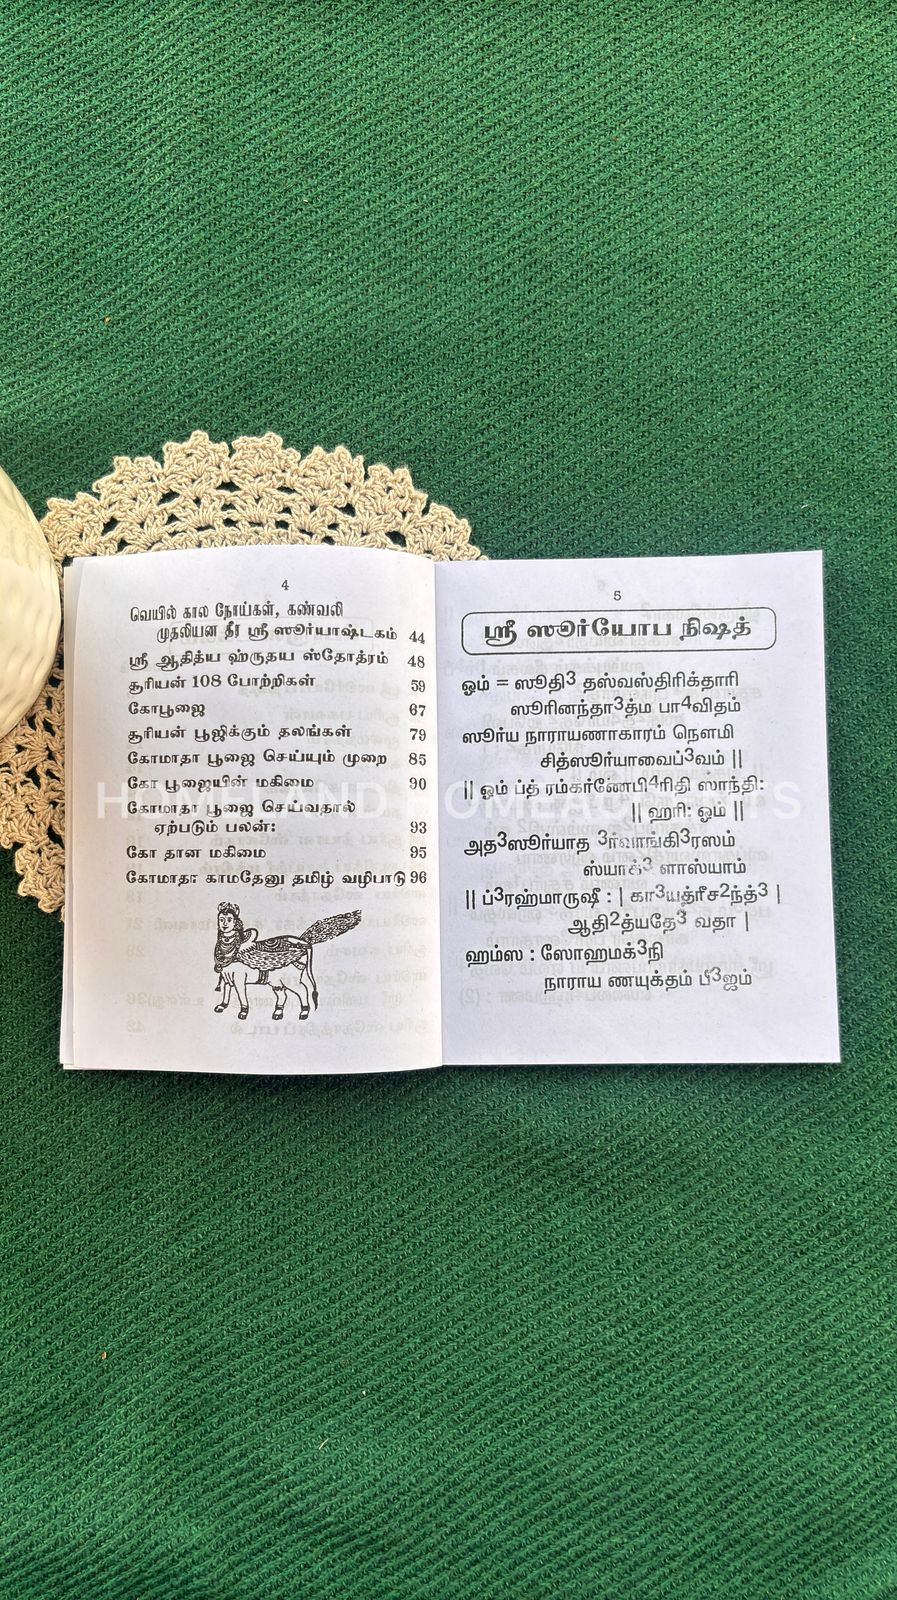 4
வெயில் கால நோய்கள், கண்வலி
முதலியன தீர ஸ்ரீ ஸூர்யாஷ்டகம் 44
ஸ்ரீ ஆதித்ய ஹ்ருதய ஸ்தோத்ரம் 48
சூரியன் 108 போற்றிகள் 59
கோபூஜை 67
சூரியன் பூஜிக்கும் தலங்கள் 79
கோமாதா பூஜை செய்யும் முறை 85
கோ பூஜையின் மகிமை 90
கோமாதா பூஜை செய்வதால்
ஏற்படும் பலன்: 93
கோ தான மகிமை 95
கோமாதா காமதேனு தமிழ் வழிபாடு 96
5
ஸ்ரீ ஸூர்யோப நிஷத்
ஓம் = ஸூதி3 தஸ்வஸ்திரிக்தாரி
ஸூரினந்தா3த்ம பா4விதம்
ஸூர்ய நாராயணாகாரம் நௌமி
சித்ஸூர்யாவைப்3வம் ||
|| ஓம் ப்த் ரம்கர்ணேபி4ரிதி ஸாந்தி:
|| ஹரி: ஓம் ||
அத3ஸூர்யாத 3ர்வாங்கி3ரஸம்
ளாஸ்யாம்
|| ப்3ரஹ்மாருஷீ : | கா3யத்ரீச2ந்த்3 |
ஆதி2த்யதே3 வதா |
ஹம்ஸ : ஸோஹமக்3நி
நாராய ணயுக்தம் பீ3ஜம்